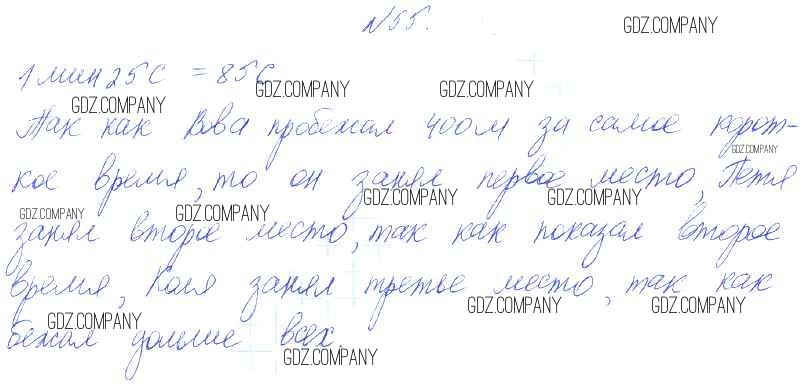 №55.
GDZ.COMPANY
1 мин 25 с = 85 с
GDZ.COMPANY GDZ.COMPANY GDZ.COMPANY
Так как Вова пробежал 400 м за самое корот-
GDZ.COMPANY
кое время, то он занял первое место, Петя
GDZ.COMPANY GDZ.COMPANY GDZ.COMPANY GDZ.COMPANY
занял второе место, так как показал второе
время, Коля занял третье место, так как
GDZ.COMPANY GDZ.COMPANY GDZ.COMPANY
бежал дольше всех.
GDZ.COMPANY